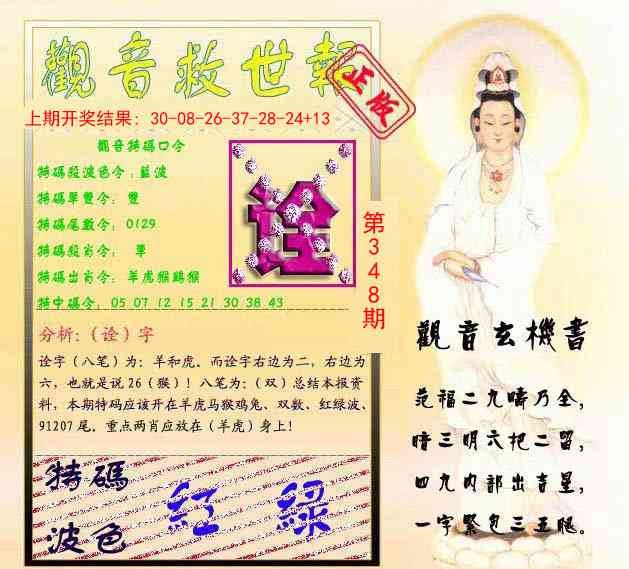 觀音救世報
正版
上期开奖结果：30-08-26-37-28-24+13
觀音特碼口令
特碼殺波色令：藍波
特碼單雙令：雙
特碼尾數令：0129
特碼殺肖令：單
特碼出肖令：羊虎猴鷄猴
特中碼令：05 07 12 15 21 30 38 43
诠
第348期
分析：（诠）字
诠字（八笔）为：羊和虎。而诠字右边为二，右边为
六，也就是说 26（猴）！八笔为：（双）总结本报资
料，本期特码应该开在羊虎马猴鸡兔、双数、红绿波、
91207 尾。重点两肖应放在（羊虎）身上！
特碼
波色
紅 綠
觀音玄機書
范福二九疇乃全，
暗三明六把二留，
四九内部出吉星，
一字緊包三五腿。